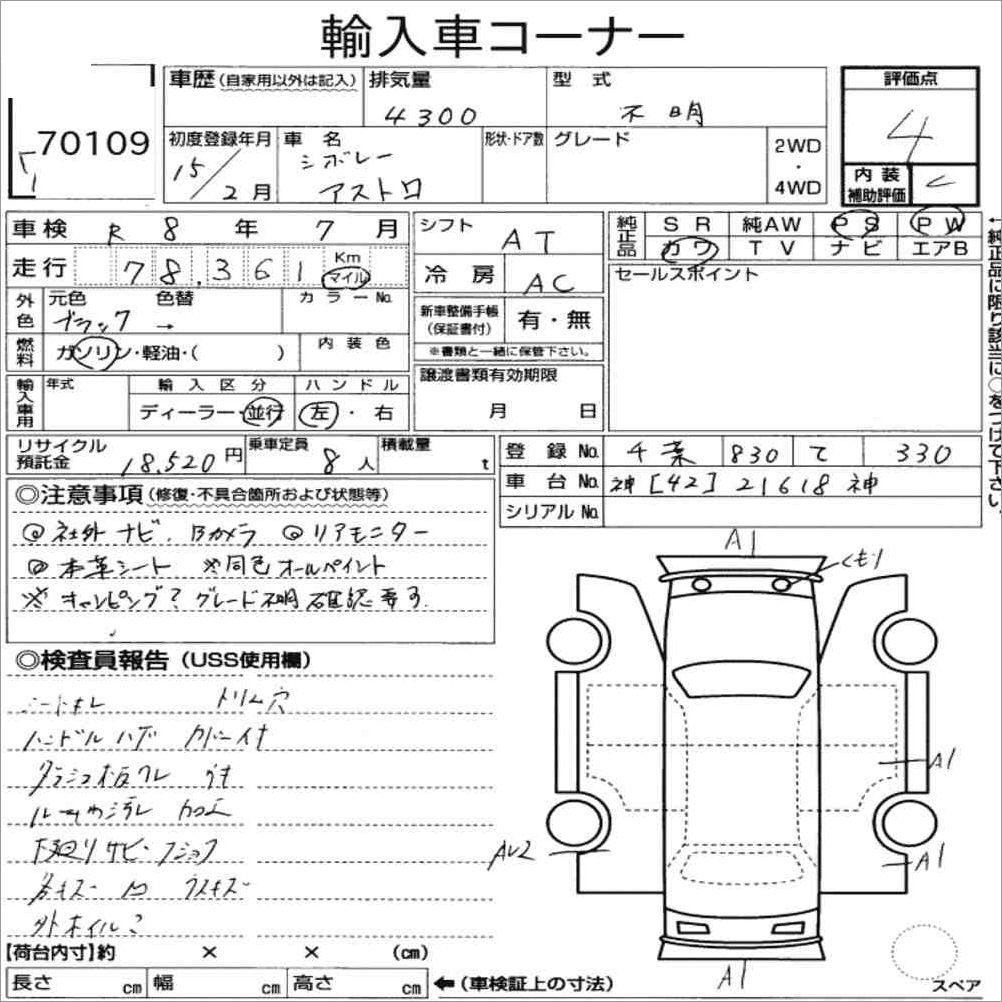 輸入車コーナー
70109
車歴(自家用以外は記入)
排気量
4300
型式
不明
評価点
4
初度登録年月
15/2月
車名
シボレー
アストロ
形状・ドア数
グレード
2WD
・
4WD
内装
補助評価
C
車検 R 8 年 7 月
走行 78,361 Km
マイル
外色
元色
ブラック
色替
→
カラーNo.
燃料
ガソリン・軽油・( )
内装色
輸入車用
年式
輸入区分
ディーラー・並行
ハンドル
左・右
シフト
AT
冷房
AC
新車整備手帳
(保証書付)
有・無
※書類と一緒に保管下さい。
譲渡書類有効期限
月 日
純正品
SR 純AW PS PW
カワ TV ナビ エアB
セールスポイント
←純正品に限り該当に○をつけて下さい。
リサイクル
預託金
18,520円
乗車定員
8人
積載量
t
登録No. 千葉 830 て 330
車台No. 神[42]21618神
シリアルNo.
◎注意事項(修復・不具合箇所および状態等)
◎社外ナビ、Bカメラ ◎リアモニター
◎本革シート ※同色オールペイント
※キャンピング?グレード不明 確認要す.
◎検査員報告(USS使用欄)
シートキレ トリム穴
ハンドルハゲ カバー付
ダッシュ板ワレ ウキ
加工
下廻りサビ・フショク
各キズ 凹 ウスキズ
外ホイル
A1
くもり
A1
A1
AU2
A1
スペア
【荷台内寸】約 × × (cm)
長さ cm 幅 cm 高さ cm ←(車検証上の寸法)